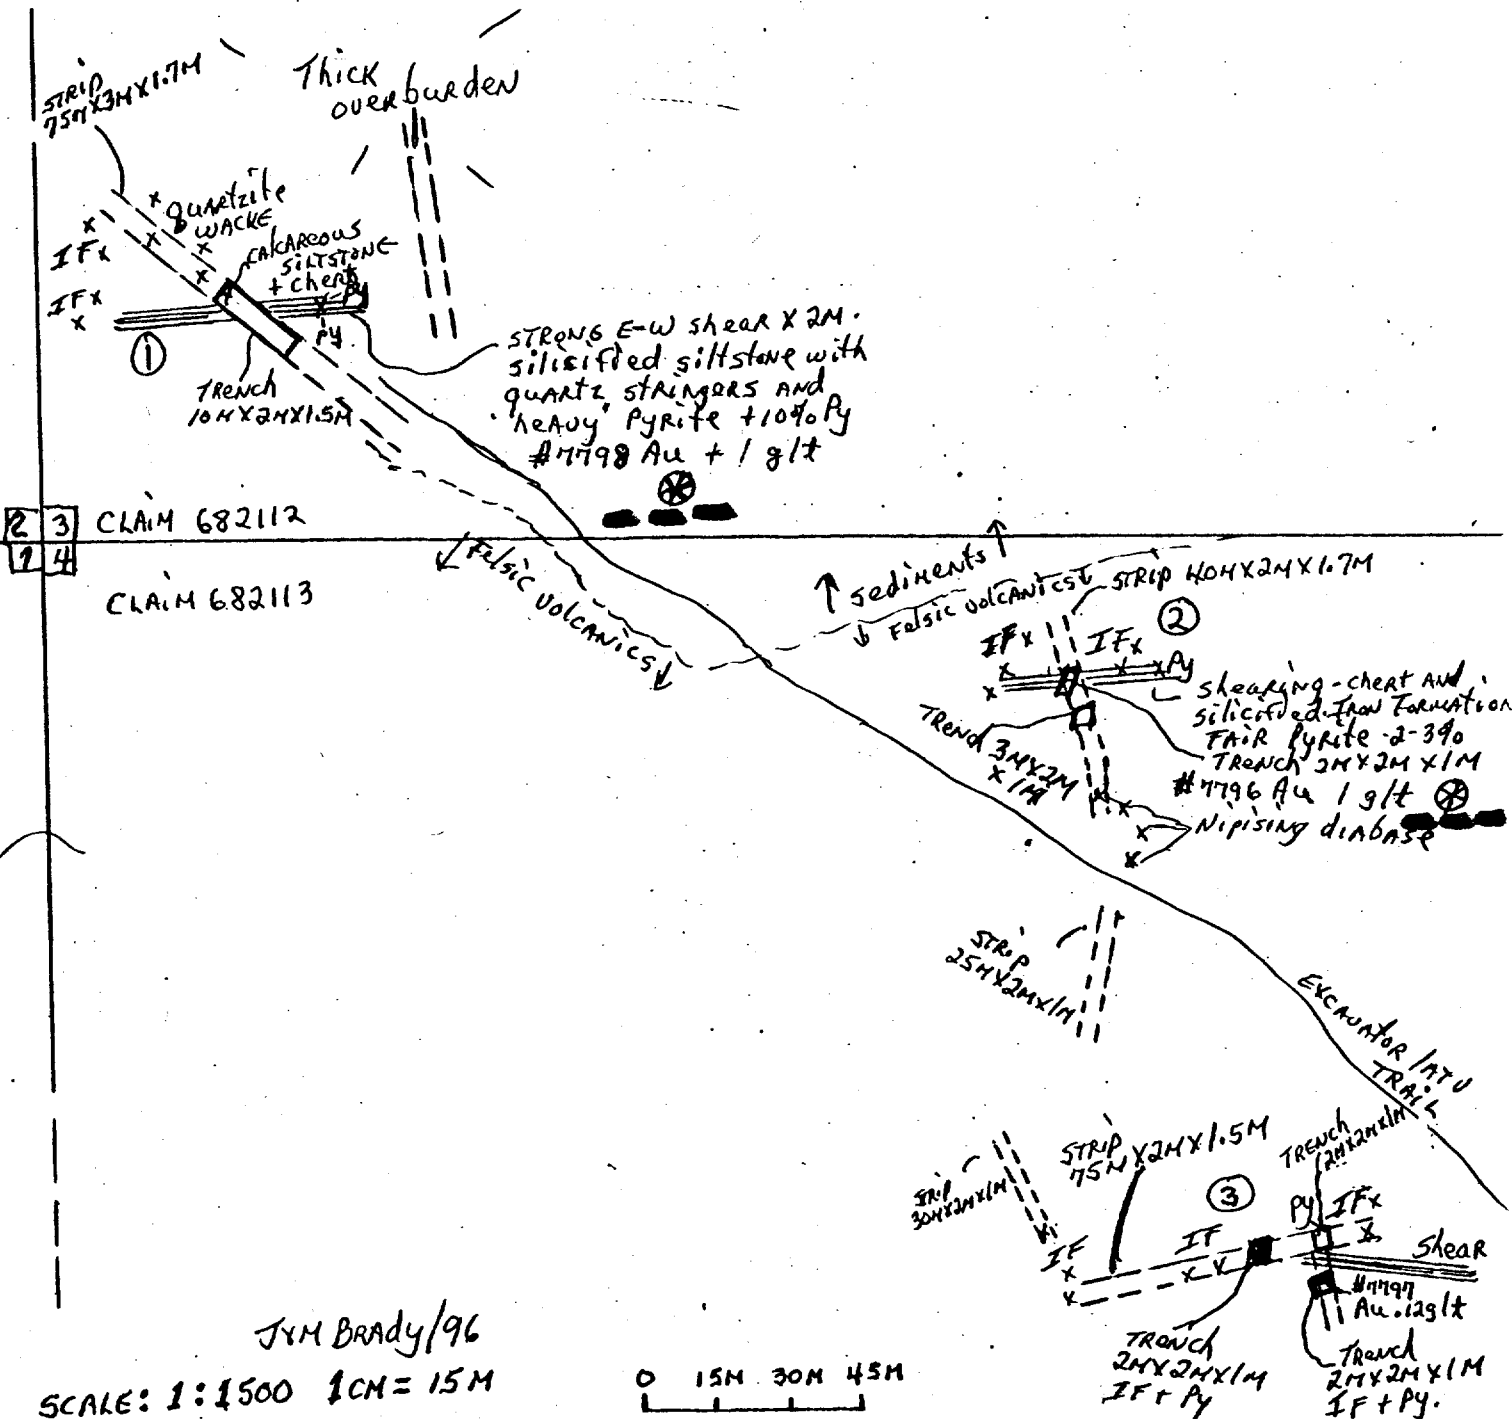 STRIP
75M X 3M X 1.7M
Thick
overburden
quartzite
WACKE
CALCAREOUS
SILTSTONE
+ chert
Py
IF x
IF x
Py
1
TRENCH
10M X 2M X 1.5M
STRONG E-W shear X 2M.
silicified siltstone with
quartz stringers AND
"heavy" Pyrite +10% Py
#7798 Au + 1 g/t
2 3
1 4
CLAIM 682112
CLAIM 682113
Felsic VOLCANICS
Sediments
Felsic volcanics
STRIP 40M X 2M X 1.7M
2
IF x
IF x
x Py
shearing - chert AND
silicified Iron Formation
FAIR Pyrite -2-3%
TRENCH 2M X 2M X 1M
#7796 Au 1 g/t
Nipising diabase
TRENCH 3M X 2M
X 1M
STRIP
25M X 2M X 1M
EXCAVATOR / ATV
TRAIL
STRIP
30M X 2M X 1M
STRIP
75M X 2M X 1.5M
3
TRENCH
2M X 2M X 1M
IF
IF
Py
IF x
Shear
#7797
Au .12 g/t
TRENCH
2M X 2M X 1M
IF + Py
TRENCH
2M X 2M X 1M
IF + Py.
JYM BRADY/96
SCALE: 1:1500 1CM = 15M
0 15M 30M 45M